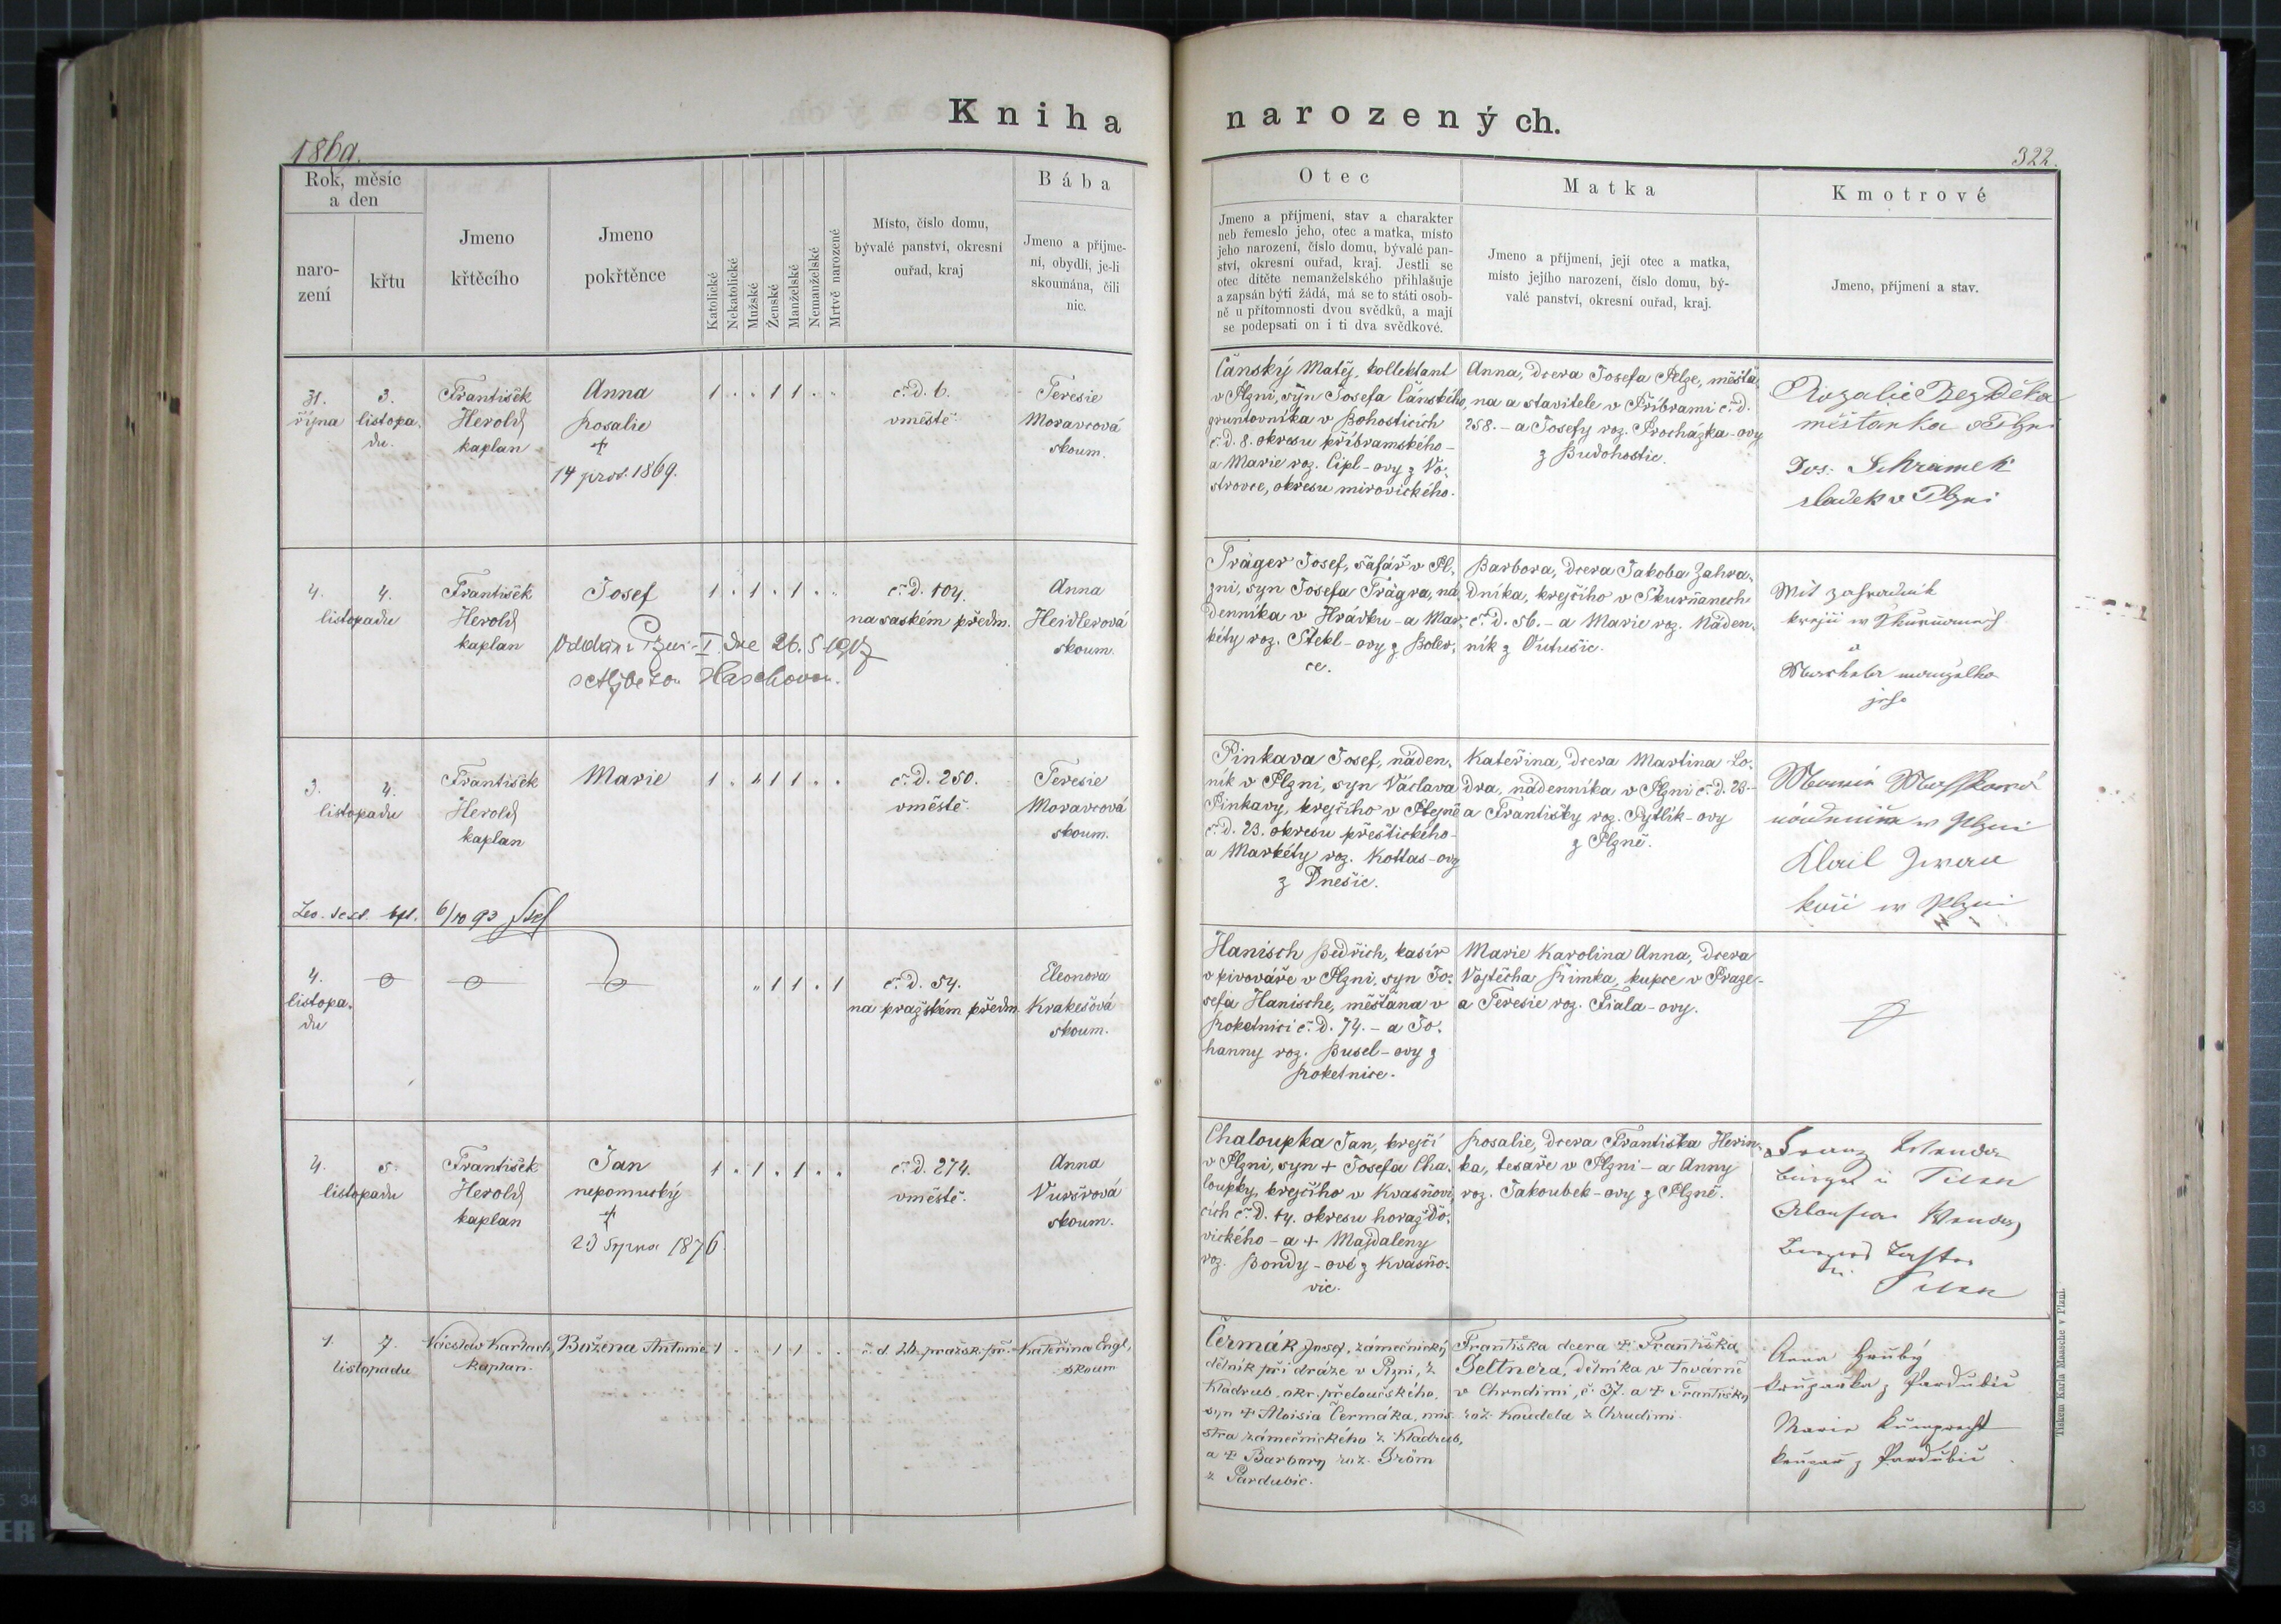 Kniha narozených.
1869.
322.
Rok, měsíc
a den
naro-
zení
křtu
Jmeno
křtěcího
Jmeno
pokřtěnce
Katolické
Nekatolické
Mužské
Ženské
Manželské
Nemanželské
Mrtvě narozené
Místo, číslo domu,
bývalé panství, okresní
ouřad, kraj
Bába
Jmeno a příjme-
ní, obydlí, je-li
skoumána, čili
nic.
Otec
Jmeno a příjmení, stav a charakter
neb řemeslo jeho, otec a matka, místo
jeho narození, číslo domu, bývalé pan-
ství, okresní ouřad, kraj. Jestli se
otec dítěte nemanželského přihlašuje
a zapsán býti žádá, má se to státi osob-
ně u přítomnosti dvou svědků, a mají
se podepsati on i ti dva svědkové.
Matka
Jmeno a příjmení, její otec a matka,
místo jejího narození, číslo domu, bý-
valé panství, okresní ouřad, kraj.
Kmotrové
Jmeno, příjmení a stav.
31.
října
3.
listopa-
du.
František
Herold
kaplan
Anna
Rosalie
+
14 pros. 1869.
1 . . 1 1 . .
č. d. 6.
v městě
Teresie
Moravcová
skoum.
Čánský Matěj, kollektant
v Plzni, syn Josefa Čánského,
gruntovníka v Bohosticích
č. d. 8. okresu příbramského -
a Marie roz. Cipl-ovy z Vo-
strovce, okresu mirovického.
Anna, dcera Josefa Pelze, měšťa-
na a stavitele v Příbrami č. d.
258. - a Josefy roz. Procházka-ovy
z Budohostic.
Rozalie Bezděka
měšťanka v Plzni
Jos. Schramek
sládek v Plzni
4. 4.
listopadu
František
Herold
kaplan
Josef
Oddáni Plzeň I. dne 26. 5.
s Alžbětou Haschovou.
1 . 1 . 1 . .
č. d. 104.
na saském předm.
Anna
Heidlerová
skoum.
Träger Josef, šafář v Pl-
zni, syn Josefa Trägra, ná-
denníka v Hrádku - a Mar-
kéty roz. Stekl-ovy z Bolev-
ce.
Barbora, dcera Jakoba Zahra-
dníka, krejčího v Škurňanech
č. d. 56. - a Marie roz. Náden-
ník z Outušic.
Vít Zahradník
krejčí w Skurňanech
a
manželka
jeho
3. 4.
listopadu
František
Herold
kaplan
Marie
1 . . 1 1 . .
č. d. 250.
v městě
Teresie
Moravcová
skoum.
Pinkava Josef, náden-
ník v Plzni, syn Václava
Pinkavy, krejčího v Ptejně
č. d. 23. okresu přeštického -
a Markéty roz. Kottas-ovy
z Dnešic.
Kateřina, dcera Martina Lo-
dra, nádenníka v Plzni č. d. 23. -
a Františky roz. Pytlík-ovy
z Plzně.
w Plzni
w Plzni
6/10 93
4.
listopa-
du
. 1 1 . 1
č. d. 54.
na pražském předm.
Eleonora
Krakešová
skoum.
Hanisch Bedřich, kasír
v pivováře v Plzni, syn Jo-
sefa Hanische, měšťana v
Roketnici č. d. 74. - a Jo-
hanny roz. Busel-ovy z
Roketnice.
Marie Karolina Anna, dcera
Vojtěcha Římka, kupce v Praze -
a Teresie roz. Fiala-ovy.
4. 5.
listopadu
František
Herold
kaplan
Jan
nepomucký
+
23 srpna 1876
1 . 1 . 1 . .
č. d. 274.
v městě.
Anna
Vuršrová
skoum.
Chaloupka Jan, krejčí
v Plzni, syn + Josefa Cha-
loupky, krejčího v Kvasňovi-
cích č. d. 14. okresu horažďo-
vického - a + Majdaleny
roz. Bondy-ové z Kvasňo-
vic.
Rosalie, dcera Františka Herin-
ka, tesaře v Plzni - a Anny
roz. Jakoubek-ovy z Plzně.
Franz
Bürger in Pilsen
Pilsen
1. 7.
listopadu
Václav Karlach,
kaplan.
Božena Antonie
1 . . 1 1 . .
č. d. 26. pražsk. př.
Kateřina Engl,
skoum
Čermák Josef, zámečnický
dělník při dráze v Plzni, z
Kladrub, okr. přeloučského,
syn + Aloisia Čermáka, mi-
stra zámečnického z Kladrub,
a + Barbory roz. Gröm
z Pardubic.
Františka dcera + Františka
Geltnera, dělníka v továrně
v Chrudimi, č. 37. a + Františky
roz. Koudela z Chrudimi.
Anna Hrubý
z Pardubic
Marie
z Pardubic
Tiskem Karla Maasche v Plzni.